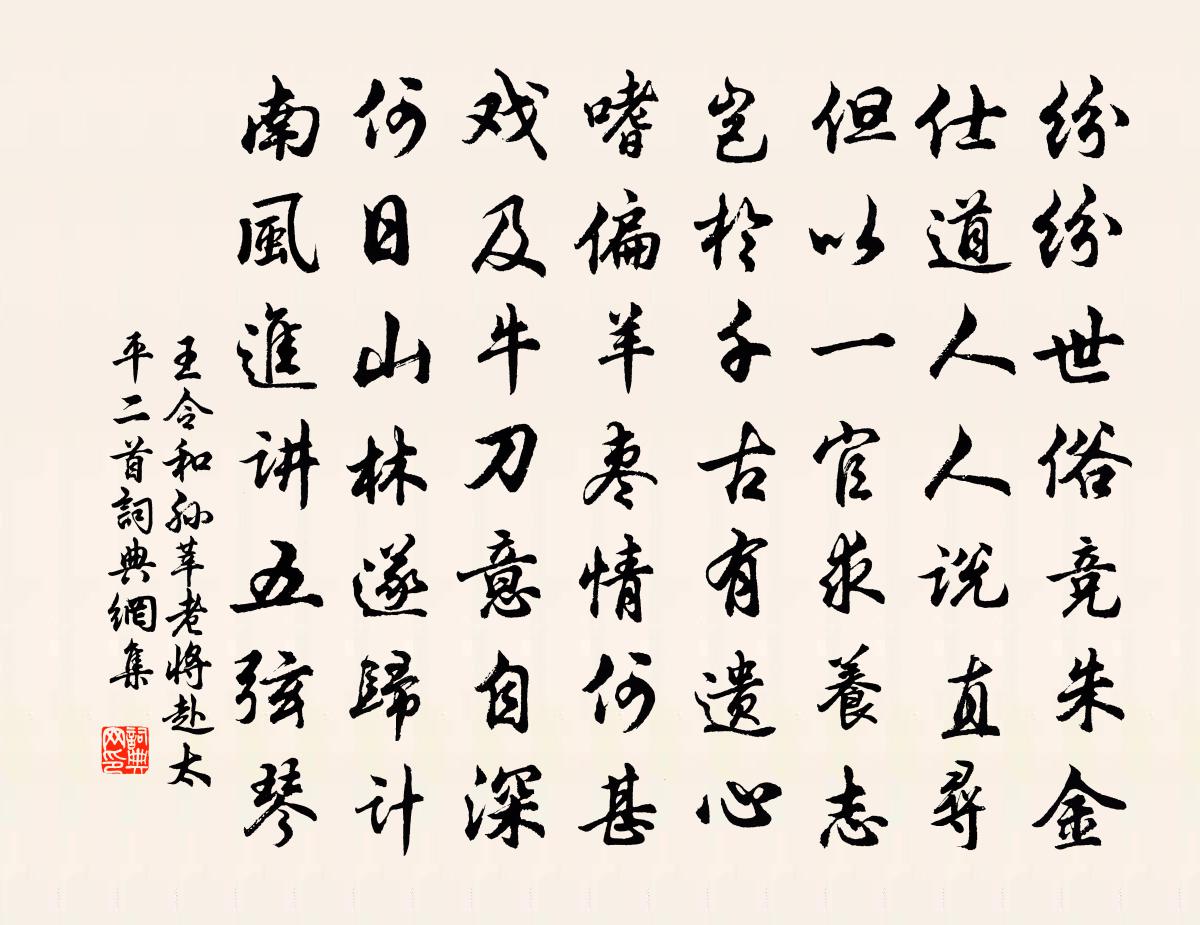 纷纷世俗竞朱金
仕道人人说直尋
但以一官求養志
岂於千古有遗心
嗜偏羊枣情何甚
戏及牛刀意自深
何日山林遂歸计
南風進讲五弦琴
王令和孙莘老将赴太
平二首詞典網集
詞典網印